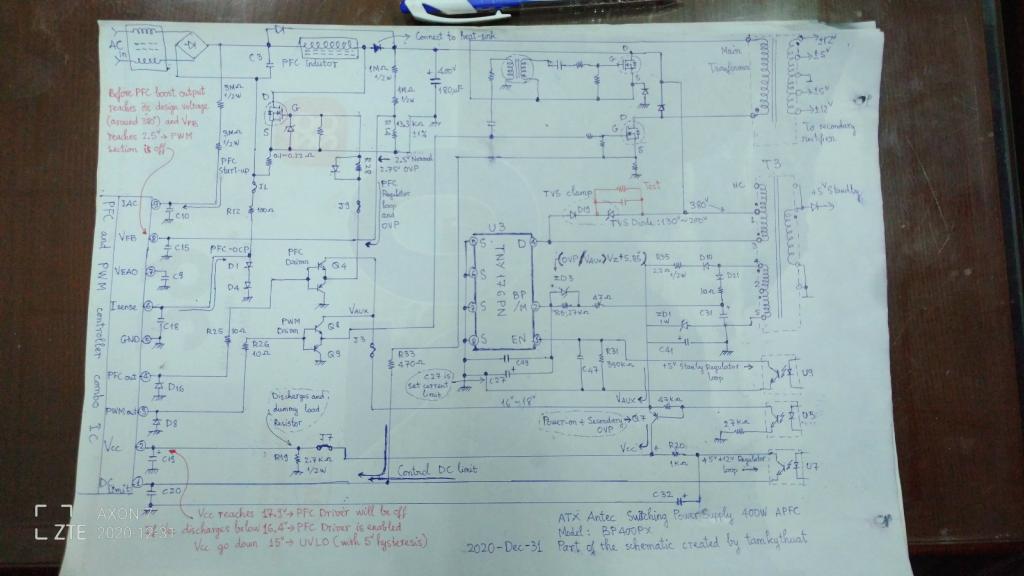 AC in
C3
PFC Inductor
Connect to Heat-sink
1MΩ 1/2W
1MΩ 1/2W
400V
180µF
Main
Transformer
±5V
±12V
To secondary
rectifiers
Before PFC boost output
reaches its design voltage
(around 380V) and VFB
reaches 2.5V → PWM
section is off
D
G
S
D
G
S
D
G
S
±1%
2.5V Normal
2.75V OVP
PFC
Regulator
loop
and
OVP
PFC
Start-up
J1
R12
J9
R28
TVS clamp
Test
D19
TVS Diode: 130V~200V
380V
NC
T3
+5V Standby
PFC and PWM controller combo IC
IAC
C10
VFB
C15
VEAO
C9
Isense
C18
GND
PFC out
D16
PWM out
D8
Vcc
C19
DC limit
C20
PFC-OCP
D1
D4
PFC
Driver
Q4
PWM
Driver
Q8
Q9
VAUX
J3
R25 10Ω
R26
10Ω
R33
470Ω
U3
TNY176PN
S
S
S
S
D
BP
/M
EN
ZD3
47Ω
R35
D10
D21
10Ω
C31
ZD1
1W
C41
C49
C27
C27 is
set current
limit
C47
R31
390KΩ
+5V Stanby Regulator
loop
U9
16V~18V
VAUX
47KΩ
Power-on + Secondary
OVP
Q7
27KΩ
Vcc
R20
1KΩ
+5V+12V Regulator
loop
U7
C32
Discharges and
dummy load
Resistor
J7
R19
2.7KΩ
1/2W
Control DC limit
Vcc reaches 17.9V → PFC Driver will be off
discharges below 16.4V → PFC Driver is enabled
Vcc go down 15V → UVLO (with 5V hysteresis)
2020-Dec-31
ATX Antec Switching Power Supply 400W APFC
Model: BP400PX
Part of the schematic created by tamkythuat
AXON
ZTE 2020.12.31